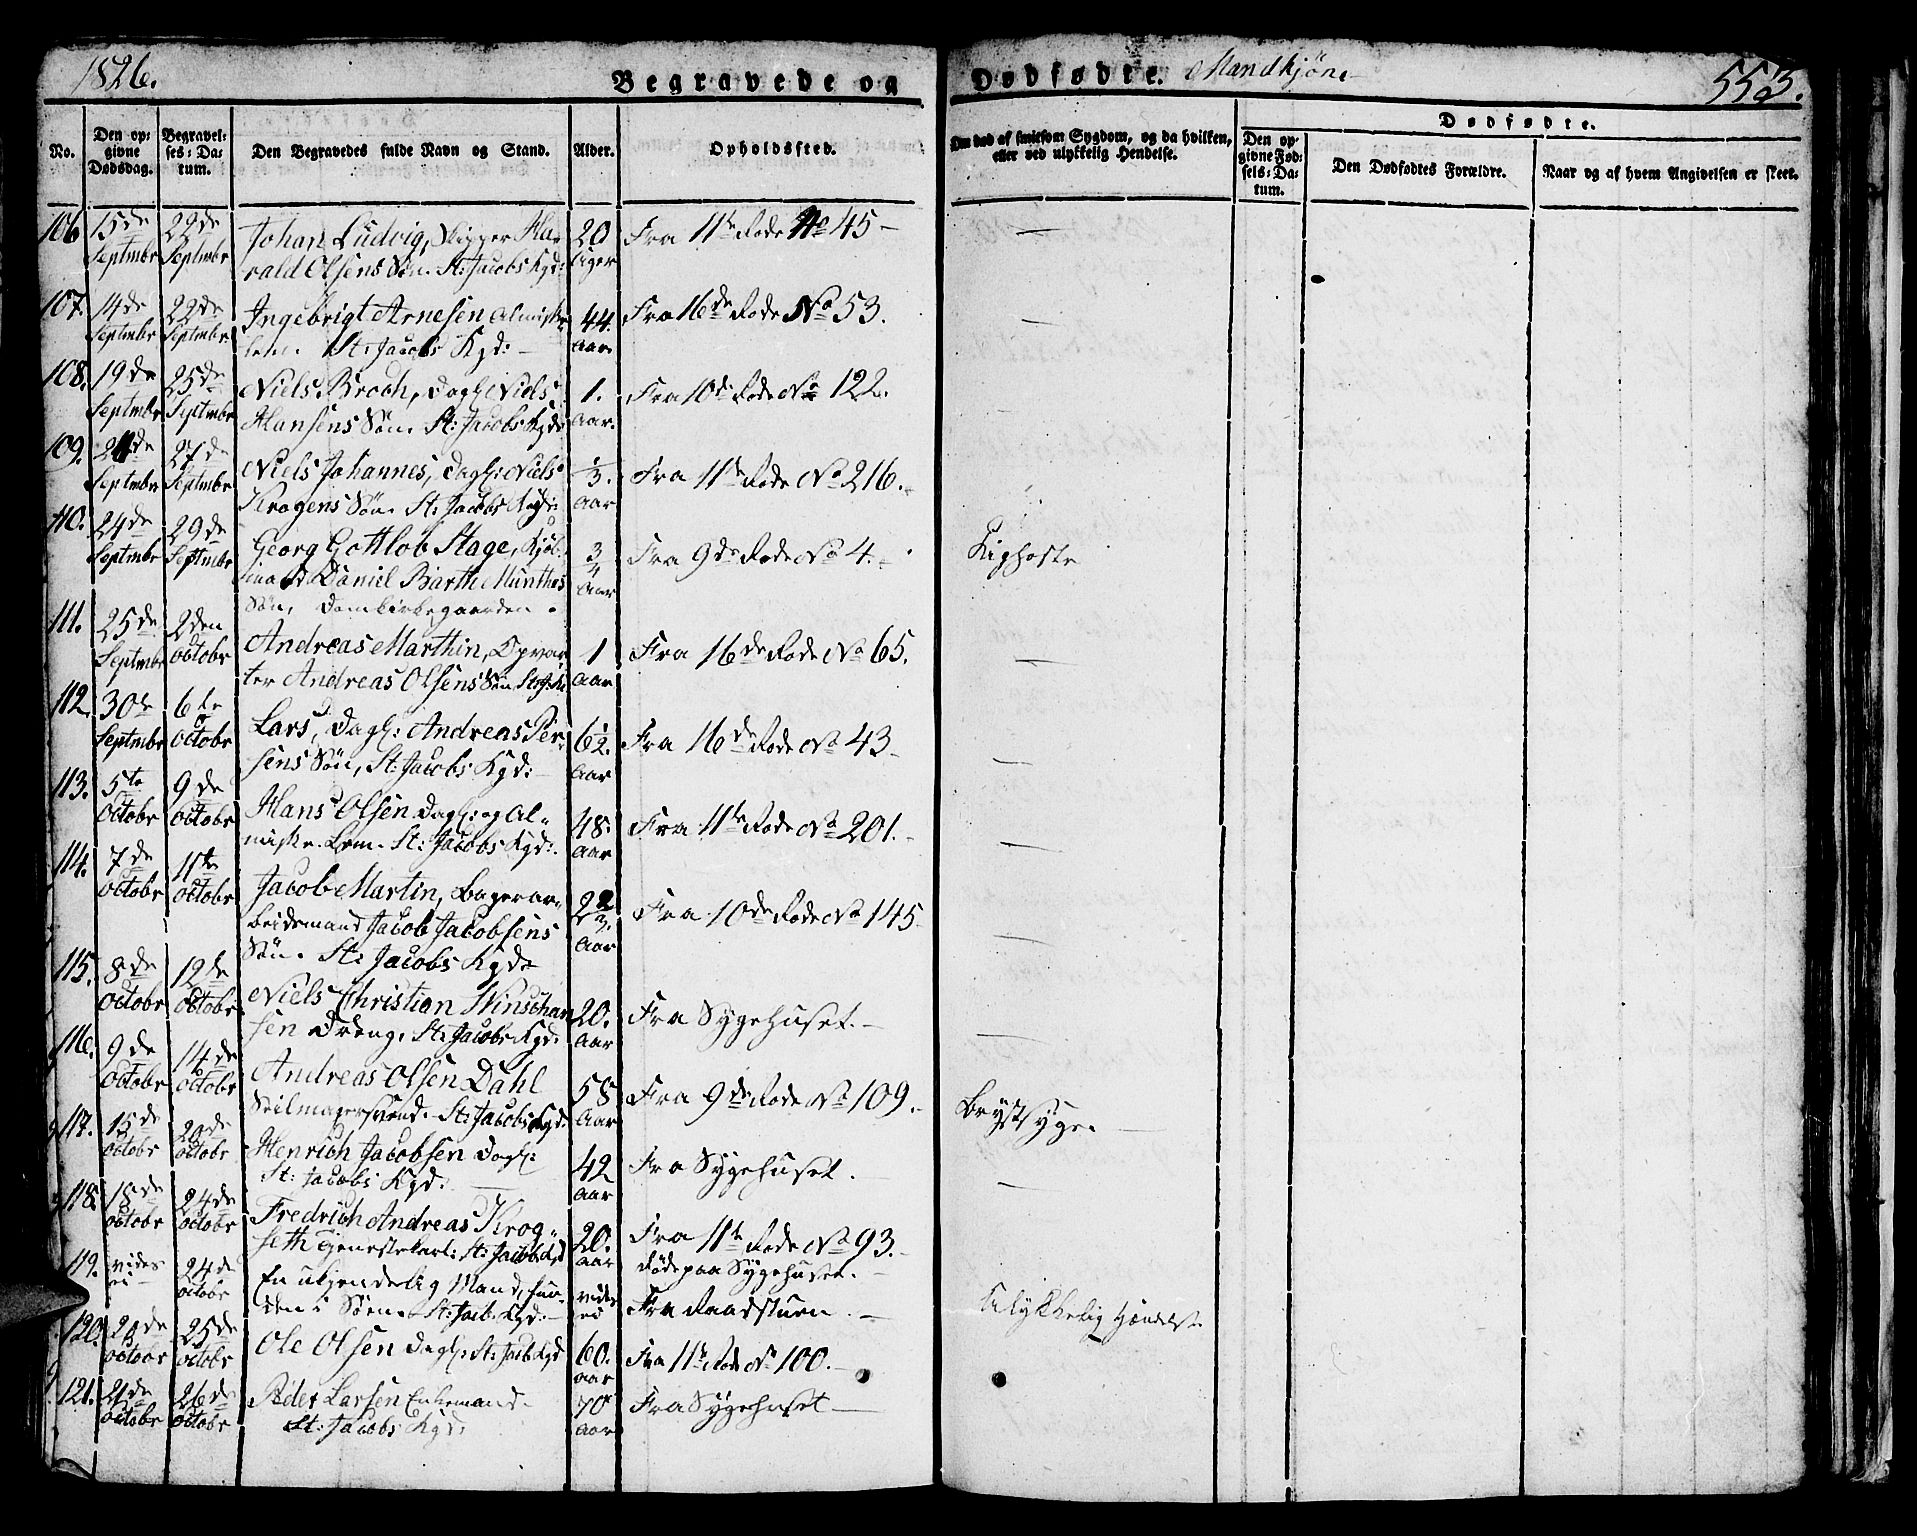 1826.
Begravede og
Dødfødte. Mandkjøn.
553.
No.
Den op-
givne
Dødsdag.
Begravel-
ses-Da-
tum.
Den Begravedes fulde Navn og Stand.
Alder.
Opholdssted.
Om død af smitsom Sygdom, og da hvilken,
eller ved ulykkelig Hendelse.
Dødfødte.
Den op-
givne Fød-
sels-Da-
tum.
Den Dødfødtes Forældre.
Naar og af hvem Angivelsen er skeet.
106 15de Septmbr 22de Septmbr
Johan Ludvig, Ligger Ha-
rald Olsens Søn. St: Jacobs Kgd:
20 Uger
Fra 11te Rode No 45 —
107. 14de Septmbr 22de Septmbr
Ingebrigt Arnesen Almisse-
lem. St: Jacobs Kgd: —
44. Aar.
Fra 16de Rode No 53.
108. 19de Septmbr 25de Septmbr
Niels Broch, Dagl: Niels
Hansens Søn. St: Jacobs Kgd:
1. Aar.
Fra 10de Rode No 122.
109. 21de Septmbr 27de Septmbr
Niels Johannes, Dagl: Niels
Krogens Søn. St: Jacobs Kgd:
1/3. Aar
Fra 11te Rode No 216.
110. 24de Septmbr 29de Septmbr
Georg Gottlob Stage, Kjøb-
mand Daniel Barth Munthes
Søn, Domkirkegaarden.
3/4 Aar
Fra 9de Rode No 4.
Kighoste
111. 25de Septmbr 2den Octobr
Andreas Marthin, Opvar-
ter Andreas Olsens Søn St: J: K:
1 Aar
Fra 16de Rode No 65.
112. 30te Septmbr 6te Octobr
Lars, Dagl: Andreas Per-
sens Søn, St: Jacobs Kgd: —
6 1/2. Aar
Fra 16de Rode No 43 —
113. 5te Octobr 9de Octobr
Hans Olsen Dagl: og Al-
misse Lem. St: Jacobs Kgd:.
48. Aar
Fra 11te Rode No 201. —
114. 7de Octobr 11te Octobr
Jacob Martin, Bagerar-
beidsmand Jacob Jacobsens
Søn. St: Jacobs Kgd:
2 2/3. Aar
Fra 10de Rode No 145
115. 8de Octobr 12te Octobr
Niels Christian
sen Dreng. St: Jacobs Kgd:
20. Aar
Fra Sygehuset. —
116. 9de Octobr 14de Octobr
Andreas Olsen Dahl
Seilmagersvend. St: Jacobs Kgd:
58 Aar
Fra 9de Rode No 109. —
Brystsyge. —
117. 15de Octobr 20de Octobr
Henrich Jacobsen Dagl:
St: Jacobs Kgd. —
42 Aar
Fra Sygehuset.
118. 18de Octobr 24de Octobr
Fredrich Andreas Krog-
seth Tjenestekarl: St: Jacobs Kgd
20. Aar
Fra 11te Rode No 93. —
døde paa Sygehuset. —
119. vides ei — 24de Octobr
En ukjendelig Mand, fun-
den i Søen. St: Jacb. Kgd: —
vides ei
Fra Raadstuen. —
Ulykkelig Hændelse
120. 20de Octobr 25de Octobr
Ole Olsen Dagl: St: Jacb Kgd
60. Aar
Fra 11te Rode No 100. —
121. 21de Octobr 26de Octobr
Peder Larsen Enkemand.
St: Jacobs Kgd:
70 Aar
Fra Sygehuset —